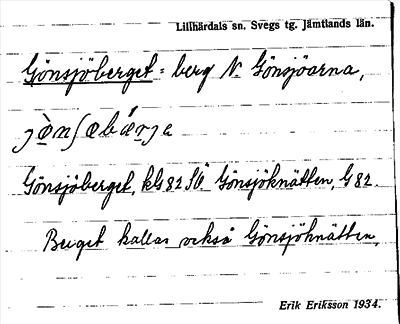 Lillhärdals sn. Svegs tg. Jämtlands län.
Gönsjöberget = berg N. Gönsjöarna,
Gönsjöberget, kG82 SO. Gönsjöknätten, G82.
Berget kallas också Gönsjöknätten.
Erik Eriksson 1934.